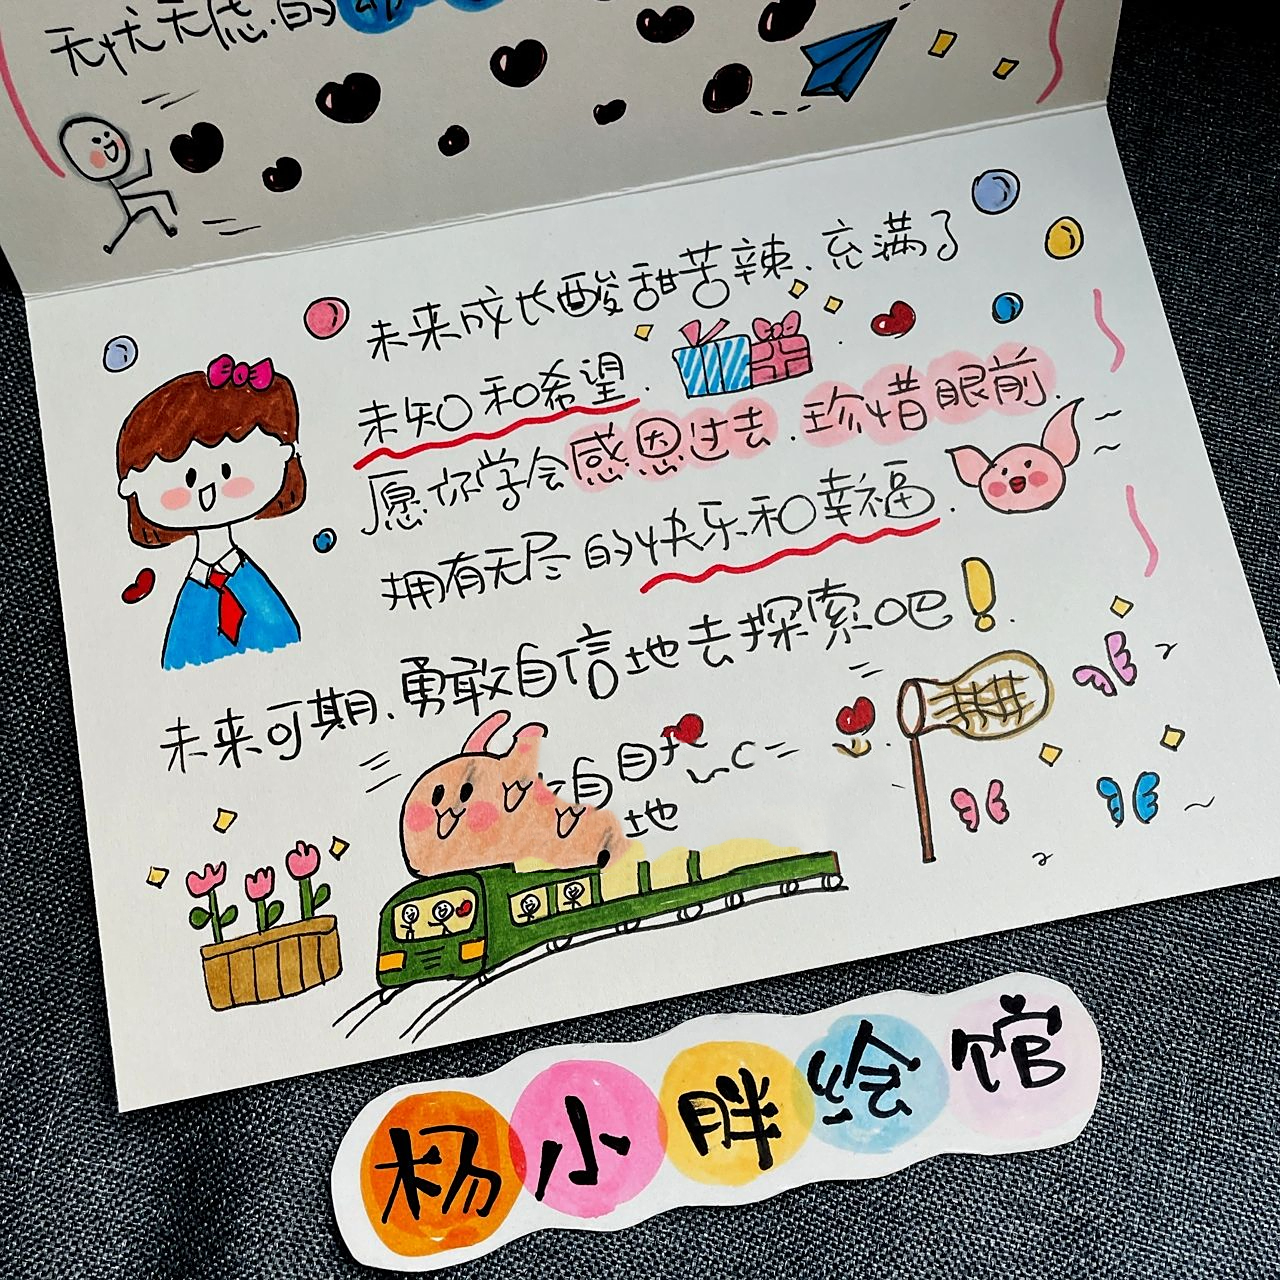 无忧无虑的
未来成长酸甜苦辣.充满了
未知和希望.
愿你学会感恩过去.珍惜眼前.
拥有无尽的快乐和幸福.
未来可期.勇敢自信地去探索吧!
自
地
杨小胖绘馆